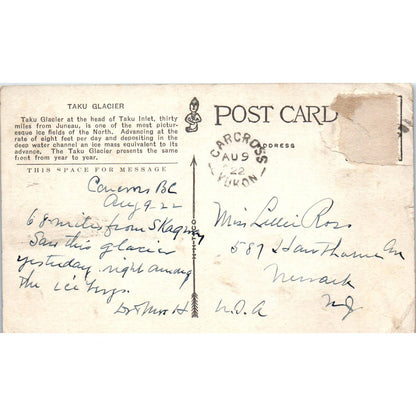 TAKU GLACIER
Taku Glacier at the head of Taku Inlet, thirty
miles from Juneau, is one of the most pictur-
esque ice fields of the North. Advancing at the
rate of eight feet per day and depositing in the
deep water channel an ice mass equivalent to its
advance. The Taku Glacier presents the same
front from year to year.
THIS SPACE FOR MESSAGE
BC
Aug 9-22
68 miles from Skagway
Saw this glacier
yesterday right among
the ice bergs.
Dr & Mrs H
POST CARD
ADDRESS
CARCROSS
AU 9
22
YUKON
Miss Lillie Ross
587 Hawthorne Av
Newark
NJ
U.S.A